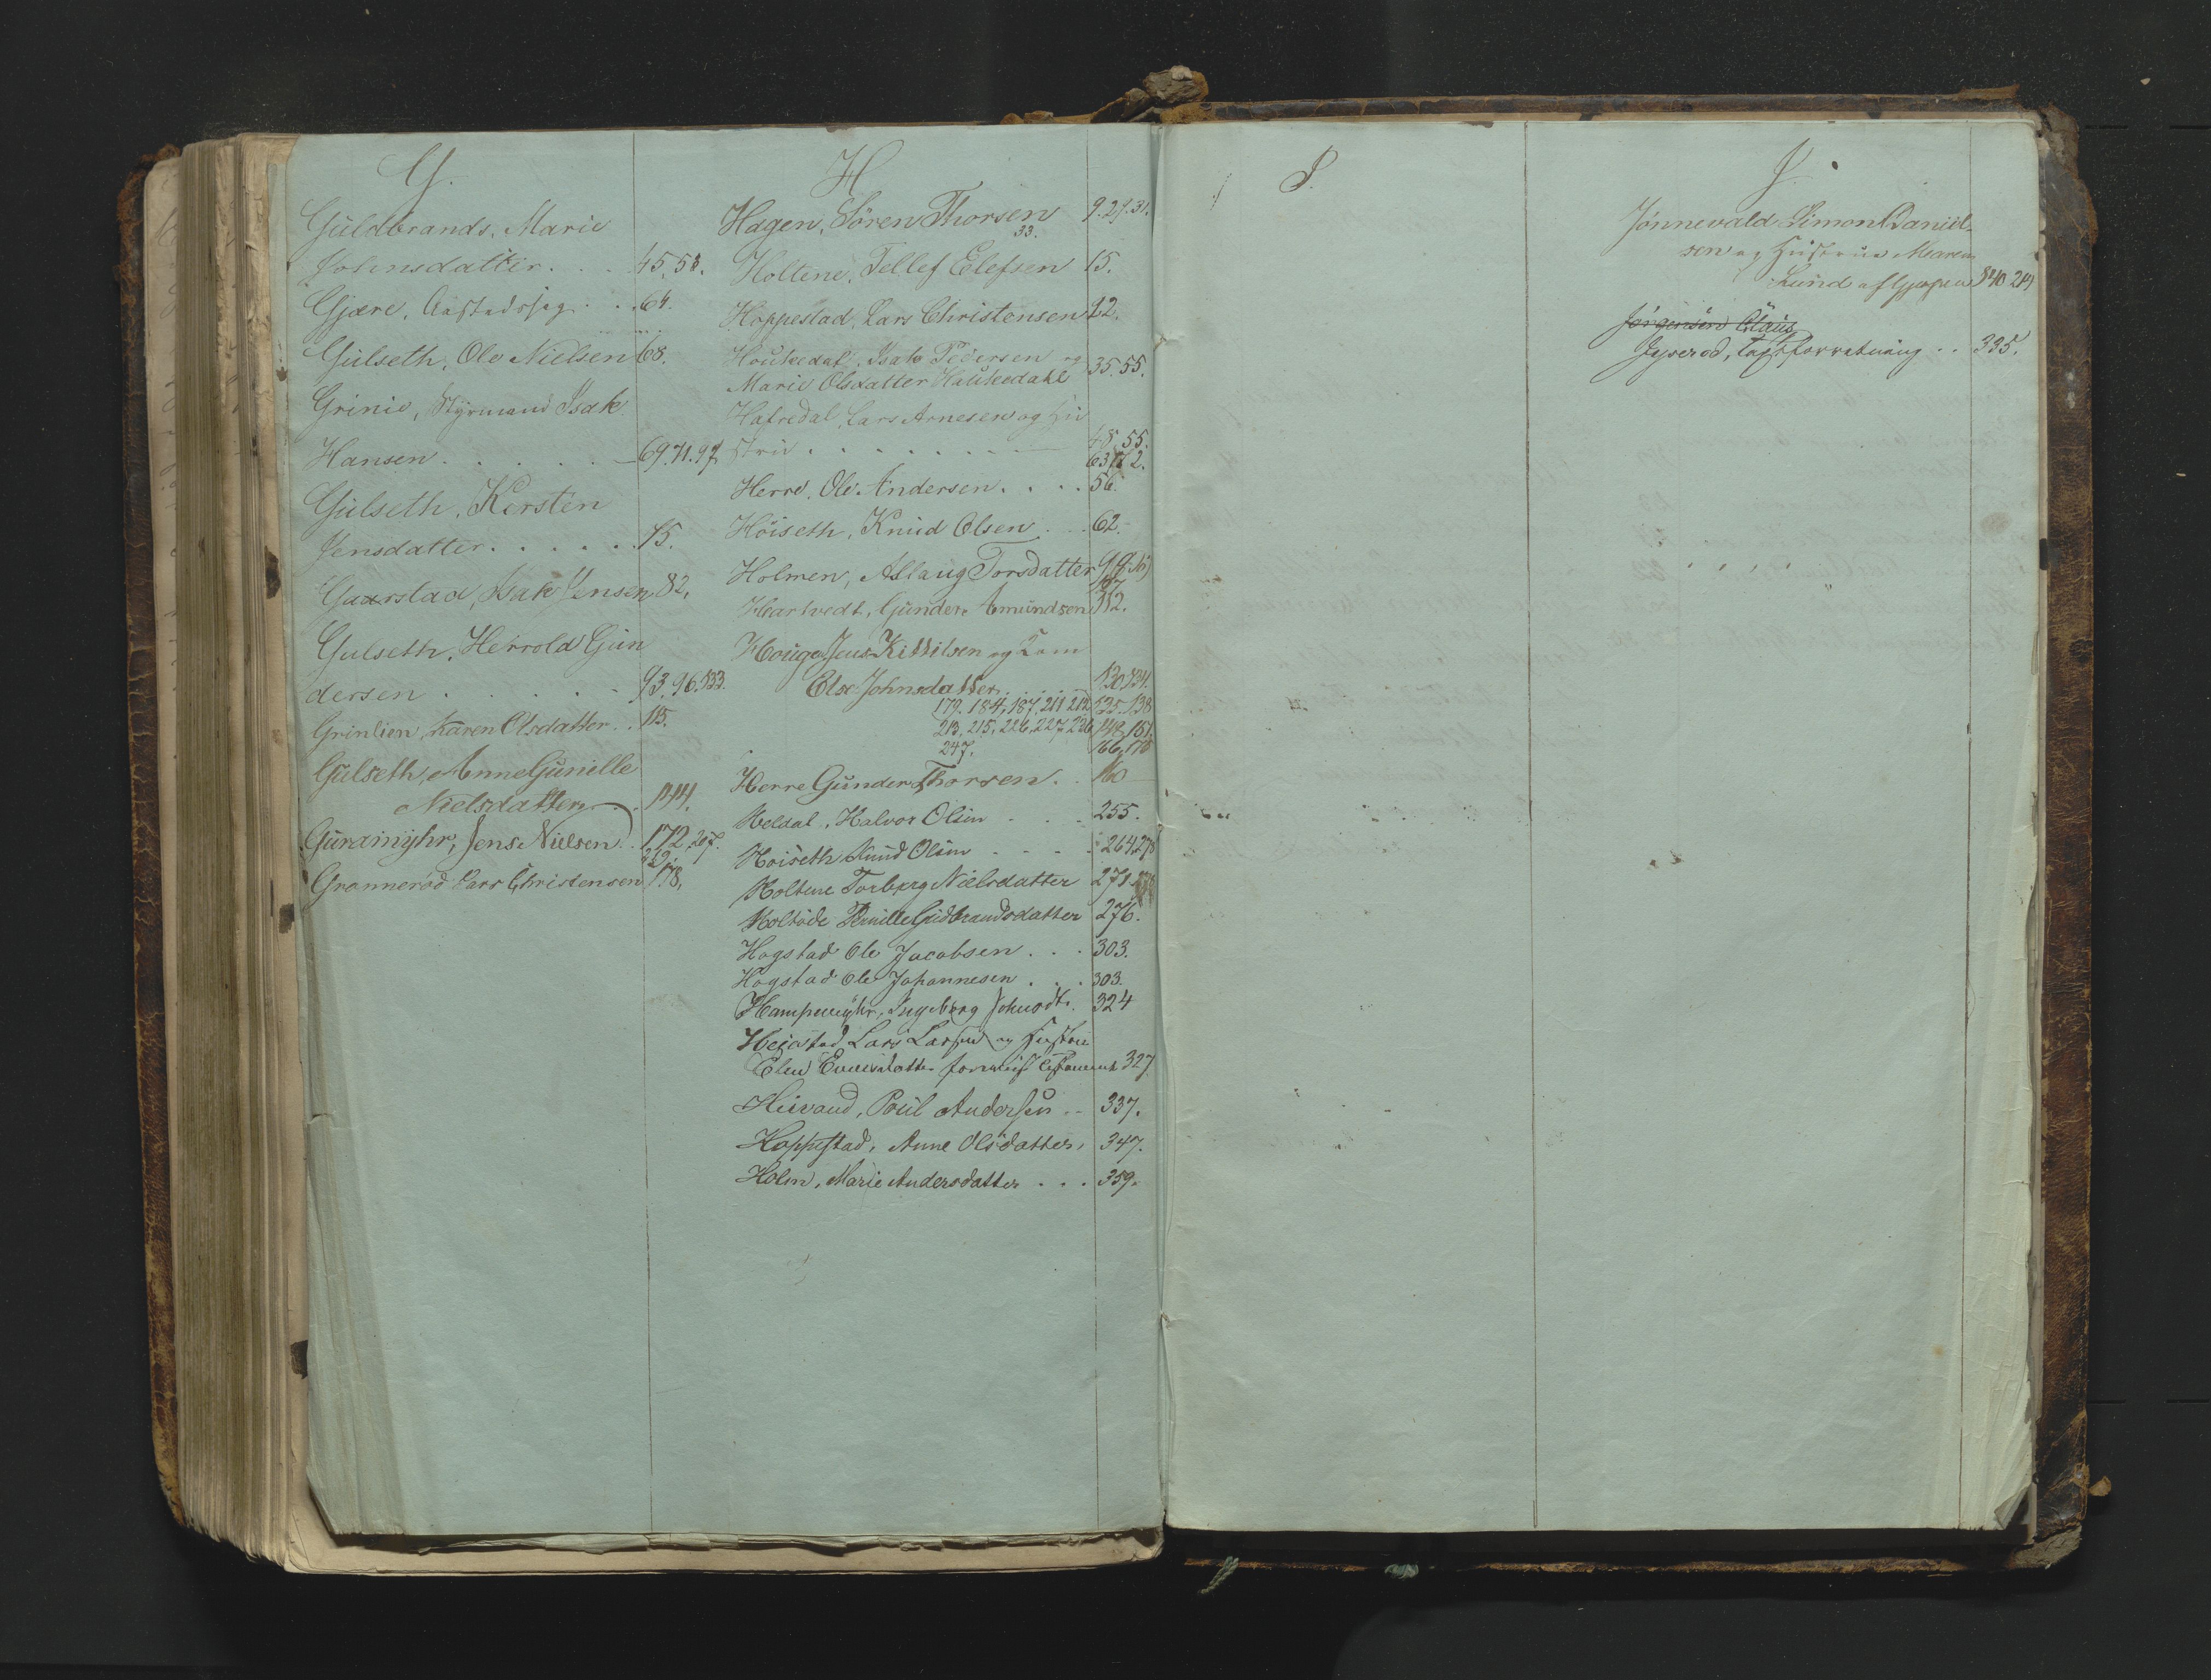 G.
Guldbrands, Marie
Johnsdatter. . . 45, 58.
Gjære, Aastedssag . . . 64.
Gulseth, Ole Nielsen 68.
Grinie, Styrmand Isak
Hansen . . . . . 69. 71. 97
Gulseth, Kirsten
Jensdatter . . . . . 75.
Gaarstad, Isak Jensen 82.
Gulseth, Herrold Gun
dersen . . . . . 93. 96. 133.
Grinlien, Karen Olsdatter . . 115.
Gulseth, Anne Gunille
Nielsdatter . . 144.
Guramyhr, Jens Nielsen . 172. 207.
229.
Grønnerød Lars Christensen 178.
H
Hagen, Sören Thorsen 9. 27. 31.
33.
Holtene, Tellef Elefsen 15.
Hoppestad, Lars Christensen 22.
Houkedal, Isak Pedersen og
Marie Olsdatter Haukedahl 35. 55.
Hafredal, Lars Arnesen og Hu
stru . . . . . . . . 48. 55.
63. 72.
Herre, Ole Andersen . . . . 56.
Höiseth, Knud Olsen . . . 62.
Holmen, Aslaug Torsdatter
107
Hartvedt, Gunder Amundsen 112.
Houge Jens Kittilsen og
Else Johnsdatter. 130. 134.
179. 184, 187, 211 212 135. 138
213, 215, 226, 227, 236, 148, 151.
247. 166, 178
Herre Gunder Thorsen . . 160
Heldal, Halvor Olsen . . . 255.
Hoiseth Knud Olsen . . . . 264, 278
Holtene Torberg Nielsdatter 271.
Gudbrandsdatter 276.
Hogstad Ole Jacobsen . . . 303.
Hogstad Ole Johannesen . . . 303.
Hampemyhr, Ingeborg Johnsdt. 324
Heistad Lars Larsen og Hustru
Elen Evensdatter 327
Poul Andersen . . 337.
Hoppestad, Anne Olsdatter, 347.
Holm, Marie Andersdatter . . . 359.
I.
J.
Jönnevald Simon Daniel-
sen og Hustrue Maren
Lund af Gjerpen 240 249
Jørgensen Claus
Jyserød, Taxtforretning . . 335.